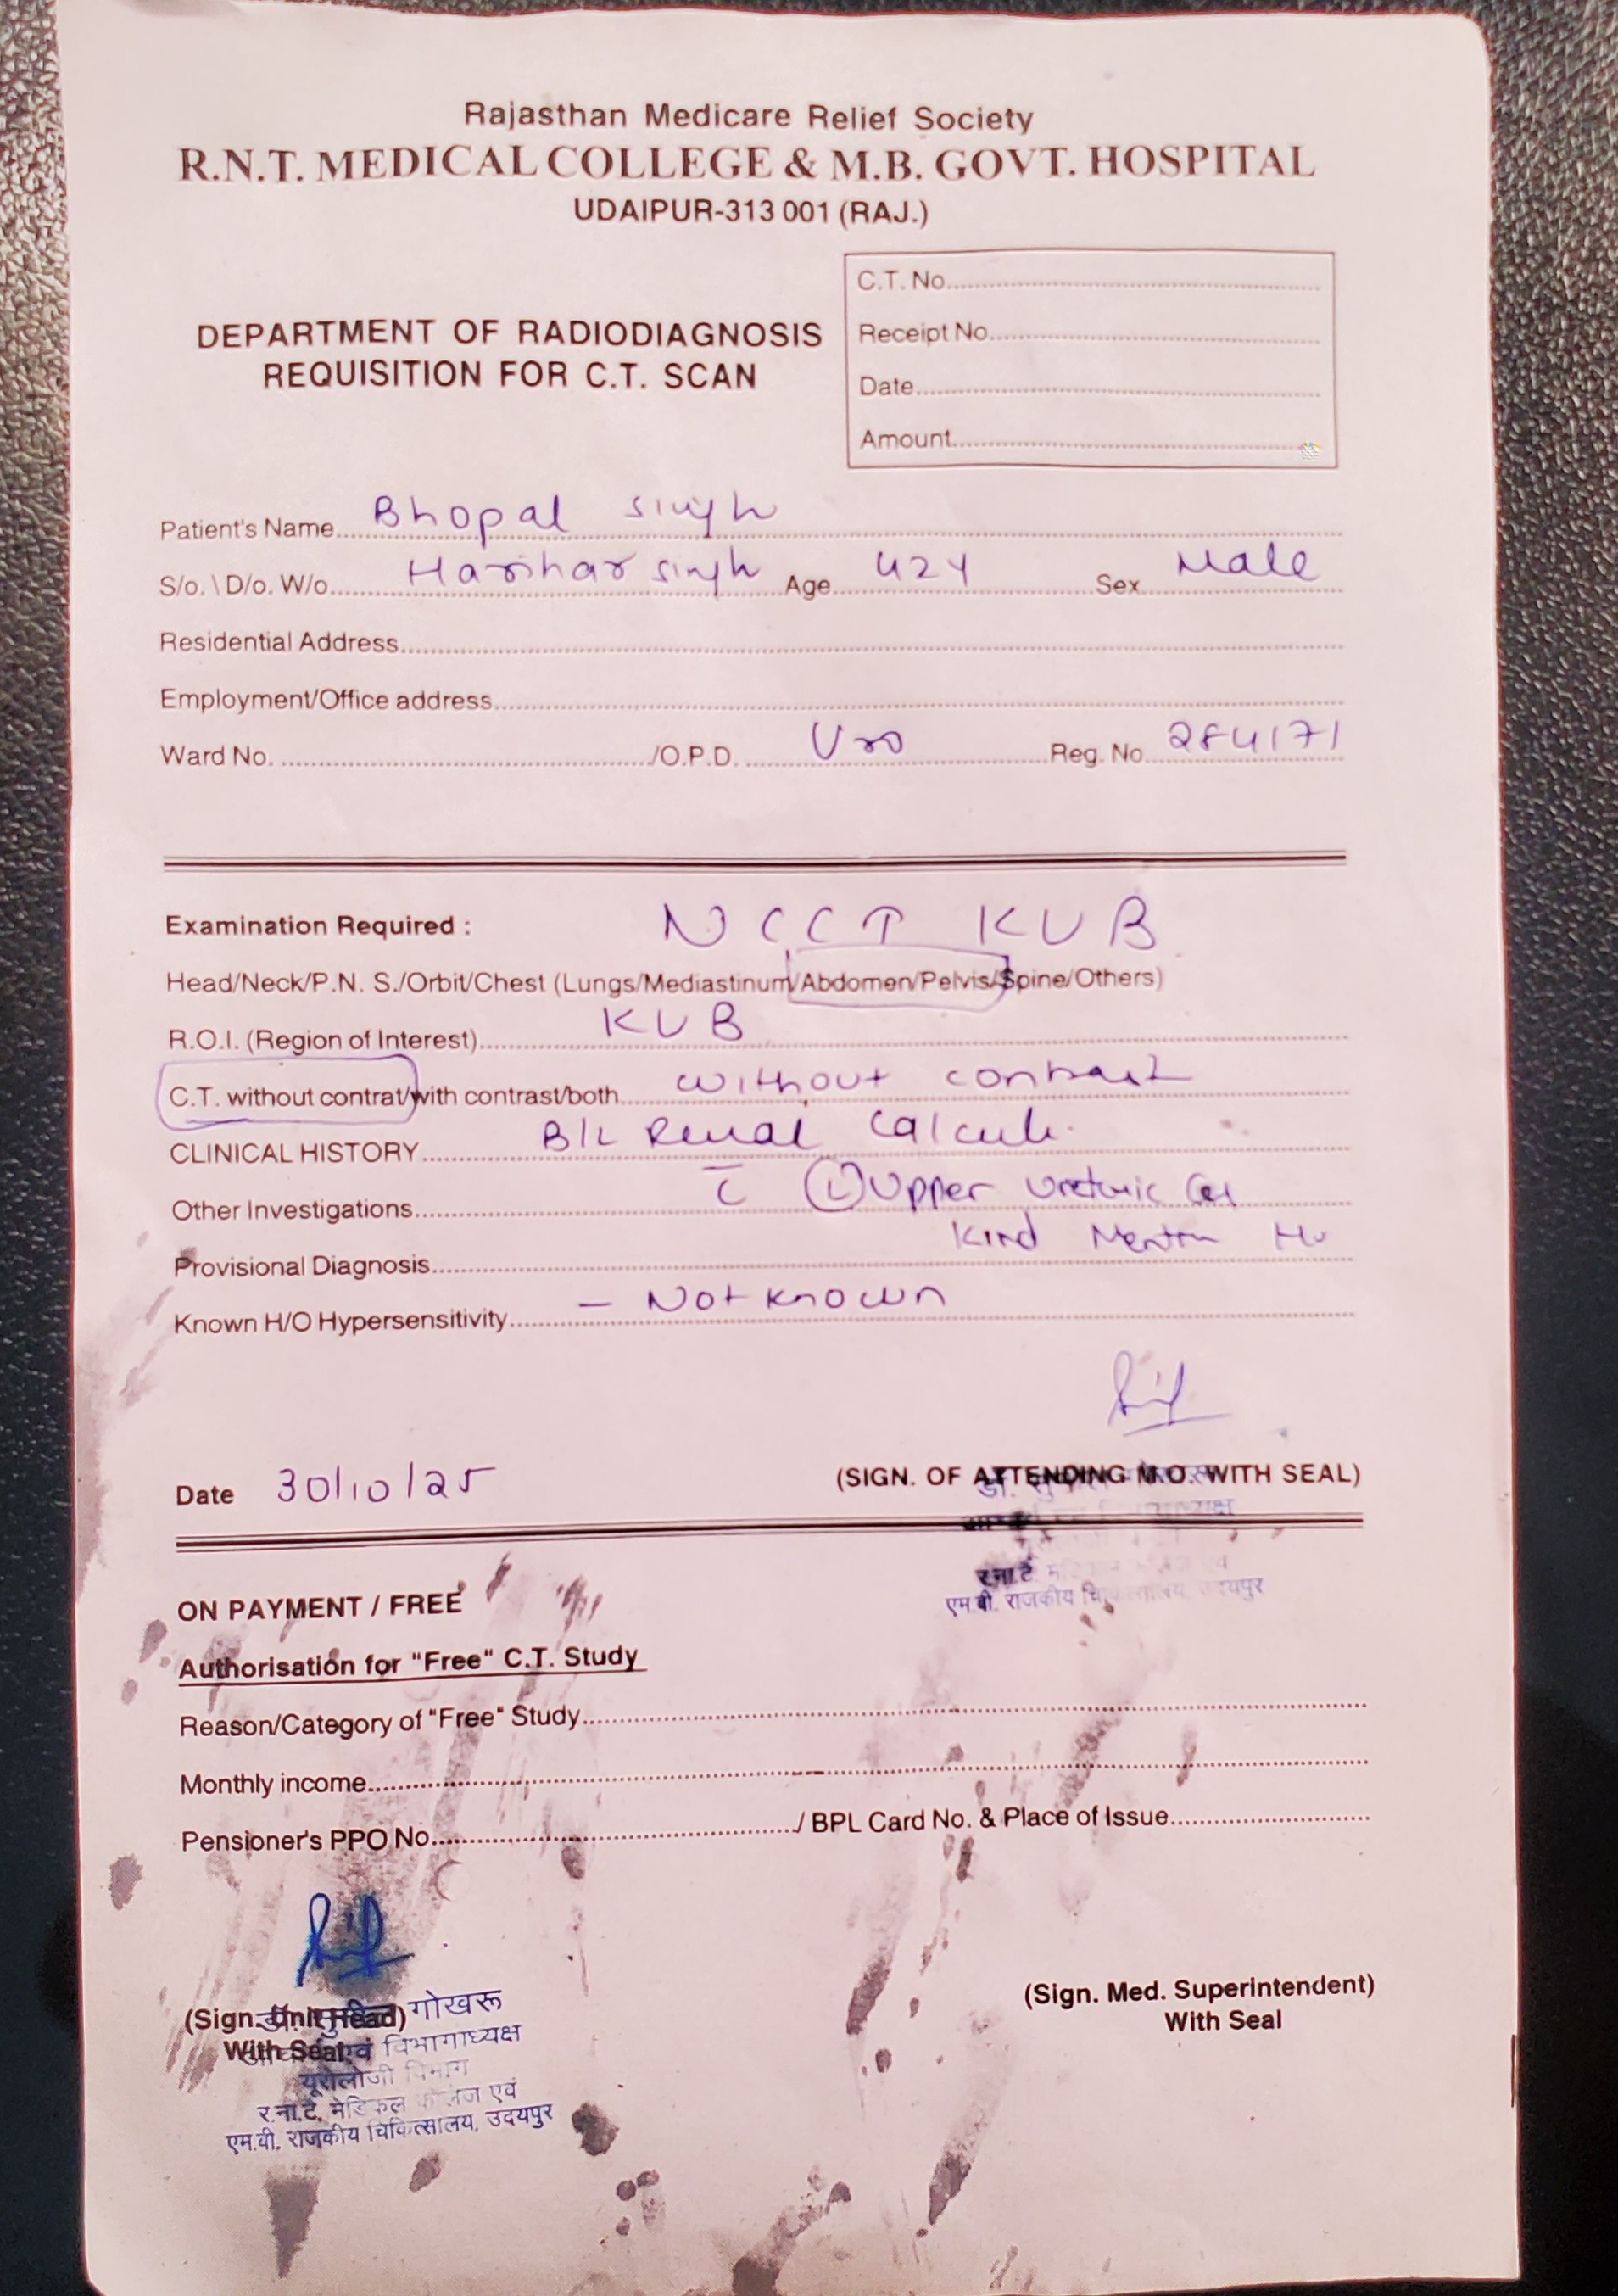 Rajasthan Medicare Relief Society
R.N.T. MEDICAL COLLEGE & M.B. GOVT. HOSPITAL
UDAIPUR-313 001 (RAJ.)
DEPARTMENT OF RADIODIAGNOSIS
REQUISITION FOR C.T. SCAN
C.T. No.
Receipt No.
Date
Amount
Patient's Name Bhopal Singh
S/o. \ D/o. W/o. Harihar singh Age 42Y Sex Male
Residential Address
Employment/Office address
Ward No. /O.P.D. Uro Reg. No. 284171
Examination Required : NCCT KUB
Head/Neck/P.N. S./Orbit/Chest (Lungs/Mediastinum/Abdomen/Pelvis/Spine/Others)
R.O.I. (Region of Interest) KUB
C.T. without contrat/with contrast/both without contrast
CLINICAL HISTORY B/L Renal Calculi
Other Investigations c̄ (L) Upper Ureteric Cal
Provisional Diagnosis Kind Mention Hu
Known H/O Hypersensitivity - Not known
Date 30/10/25
(SIGN. OF ATTENDING M.O. WITH SEAL)
र.ना.टे.
एम.बी. राजकीय उदयपुर
ON PAYMENT / FREE
Authorisation for "Free" C.T. Study
Reason/Category of "Free" Study
Monthly income
Pensioner's PPO No. / BPL Card No. & Place of Issue
(Sign. Unit Head)
With Seal
डॉ. गोखरू
एवं विभागाध्यक्ष
यूरोलोजी विभाग
र.ना.टे. मेडिकल कॉलेज एवं
एम.बी. राजकीय चिकित्सालय, उदयपुर
(Sign. Med. Superintendent)
With Seal